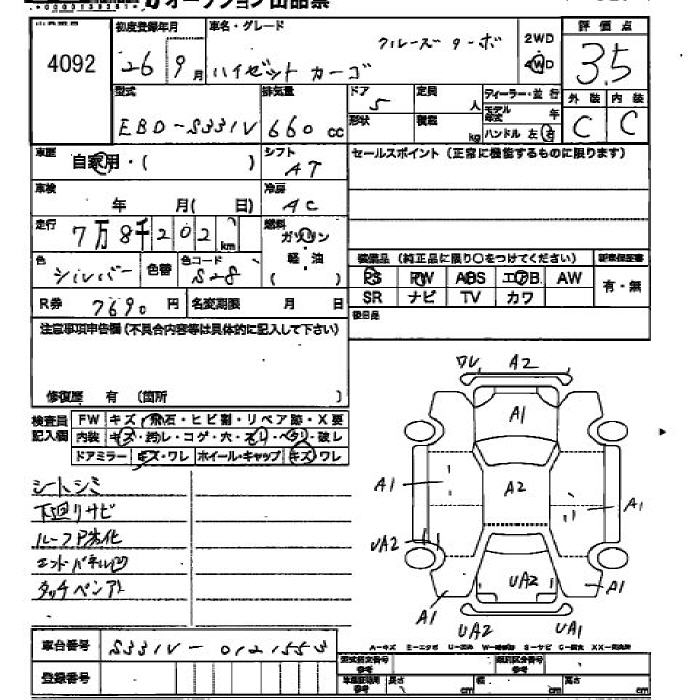 オークション出品票
4092
初度登録年月 26 9月
車名・グレード クルーズターボ
ハイゼットカーゴ
2WD
4WD
評価点 3.5
外装 内装
C C
型式 EBD-S331V
排気量 660 cc
ドア 5
定員 人
形状
積載 kg
ディーラー・並行
モデル年式 年
ハンドル 左 右
車歴 自家用・( )
シフト AT
セールスポイント(正常に機能するものに限ります)
車検 年 月( 日)
冷房 AC
走行 7万8千202 km
燃料 ガソリン
軽・油
( )
色 シルバー 色替 色コード S28
装備品(純正品に限り○をつけてください) 新車保証書
PS PW ABS エアB AW 有・無
SR ナビ TV カワ
R券 7690円 名変期限 月 日
後日品
注意事項申告欄(不具合内容等は具体的に記入して下さい)
修復歴 有 (箇所 )
検査員記入欄
FW キズ・飛石・ヒビ割・リペア跡・X要
内装 キズ・汚レ・コゲ・穴・スレ・ヘタリ・破レ
ドアミラー キズ・ワレ ホイール・キャップ キズ・ワレ
ワレ A2
A1
A1 A2 A1
UA2
UA2
A1 A1
UA2 UA1
シートシミ
下回リサビ
ルーフ劣化
エンドパネル凹
タッチペンアト
A-キズ E-エクボ
車台番号 S331V-0121553
登録番号
型式指定番号 類別区分番号
長さ cm 幅 cm 高さ cm